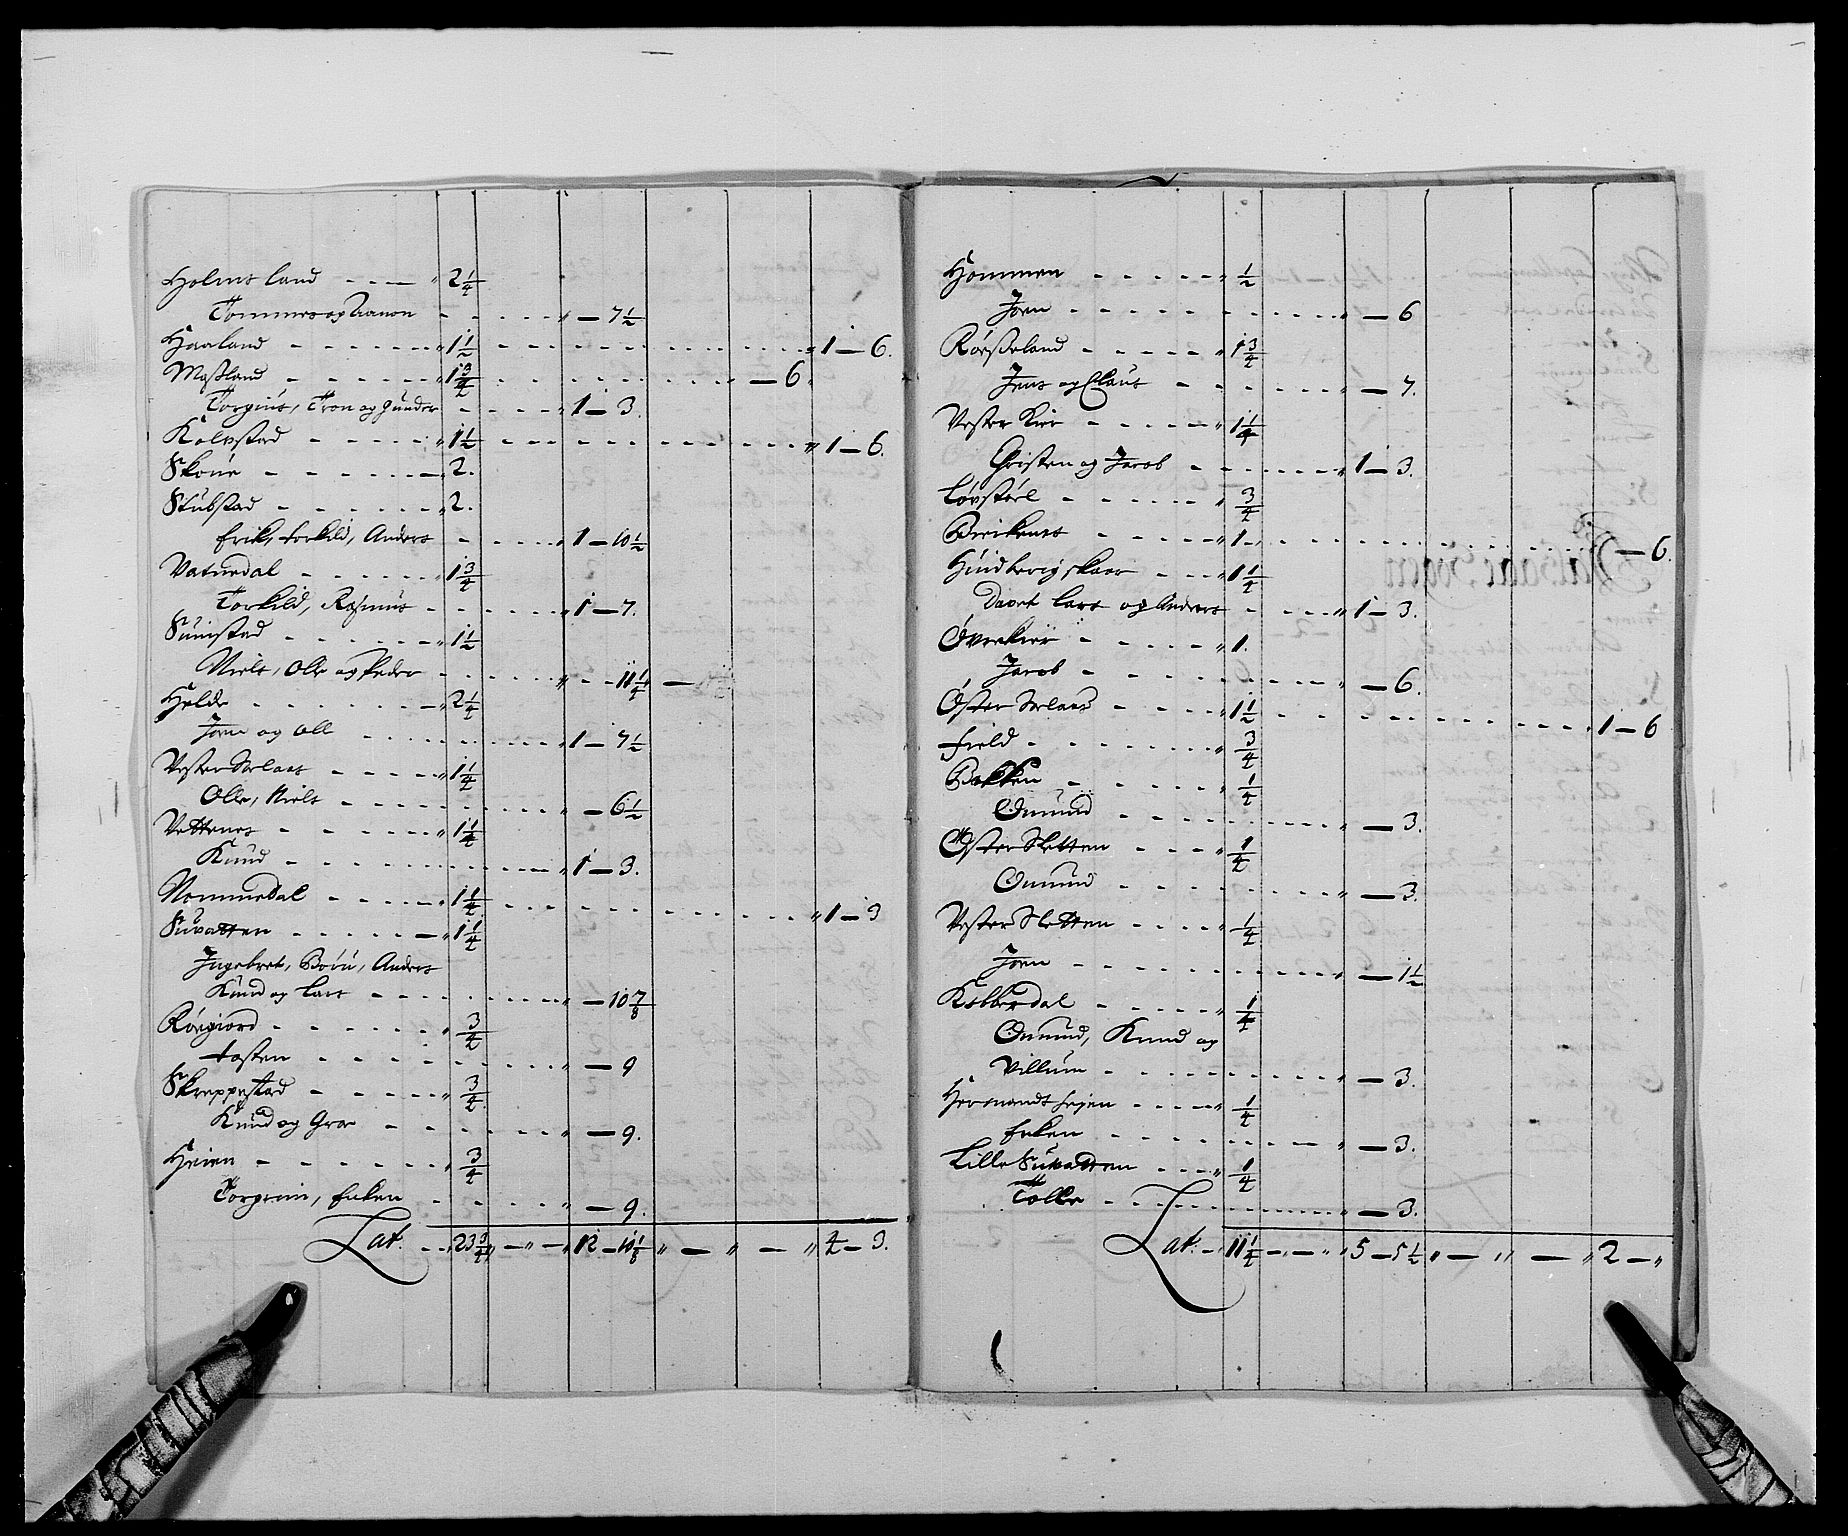 Holms land - - - „ 2 1/4
Tommes og Aanon - - - - - „ — 7 1/2
Haaland - - - - - - „ 1 1/2 - - - - - - „ 1 — 6.
Moßland - - - - - „ 1 3/4 - - - - - — 6
Torgius, Tron og Gunder - - - - 1 — 3.
Kolvstad - - - - - „ 1 1/2 - - - - - - „ 1 — 6.
Skoue - - - - - - 2.
Stubstad - - - - - „ 2.
Erik, torkild, Anders - - - - „ 1 — 10 1/2
Vatnedal - - - - - „ 1 3/4
Torkild, Rasmus - - - - - „ 1 — 7.
Sunistad - - - - - - „ 1 1/2
Niels, Olle og Peder - - - - - „ - - 11 1/4 —
Helde - - - - - - 2 1/4
Jorn og Oll - - - - - - „ 1 — 7 1/2
Vester Selaas - - - - - „ 1 1/4
Olle, Niels - - - - - - - „ — 6 1/2
Vettenes - - - - - „ 1 1/4
Knud - - - - - - - - 1 — 3.
Nommedal - - - - - „ 1 1/4 - - - - - - „ 1 — 3
Suvatten - - - - - „ 1 1/4
Ingebret, Anders
Knud og Lars - - - - - - „ — 10 7/8
Rørgiord - - - - - - „ 3/4
tosten - - - - - - - „ — 9
Skreppestad - - - - - „ 3/4
Knud og Groe - - - - - - „ — 9.
Heien - - - - - - „ 3/4
Torgrim, Enken - - - - - - „ — 9.
Lat. - - 23 3/4 „ — „ — „ 12 — 10 1/8 „ — „ — „ 4 — 3.
Hommen - - - - - „ 1/2
Jørn - - - - - - - - - - „ — 6
Rørßeland - - - - - „ 1 3/4
Jens og Claus - - - - - - „ — 7.
Vester Kier - - - - - „ 1 1/4
Christen og Jacob - - - - - - „ 1 — 3.
Løvstøel - - - - - - „ 3/4
Birikenes - - - - - „ 1 - - - - - - - — 6.
Hindberigskaar - - - „ 1 1/4
Lars og Anders - - - - „ 1 — 3.
Øvrekier - - - - - „ 1.
Jacob - - - - - - - - - „ — 6.
Øster Selaas - - - - - „ 1 1/2 - - - - - - „ 1 — 6
Field - - - - - - - „ 3/4
Bakken - - - - - - „ 1/4
Omund - - - - - - - - „ — 3.
Øster Sletten - - - - „ 1/4
Omund - - - - - - - - „ — 3.
Vester Sletten - - - - „ 1/4
Jørn - - - - - - - - - „ — 1 1/2
Kebberdal - - - - - „ 1/4
Omund, Knud og
Villum - - - - - - - - „ — 3.
Hermandt - - - - „ 1/4
Enken - - - - - - - - „ — 3.
Lille Suvatten - - - „ 1/4
Tolle - - - - - - - - „ — 3.
Lat. - „ 11 1/4 - „ — „ 5 — 5 1/2 „ — „ — „ 2 — „